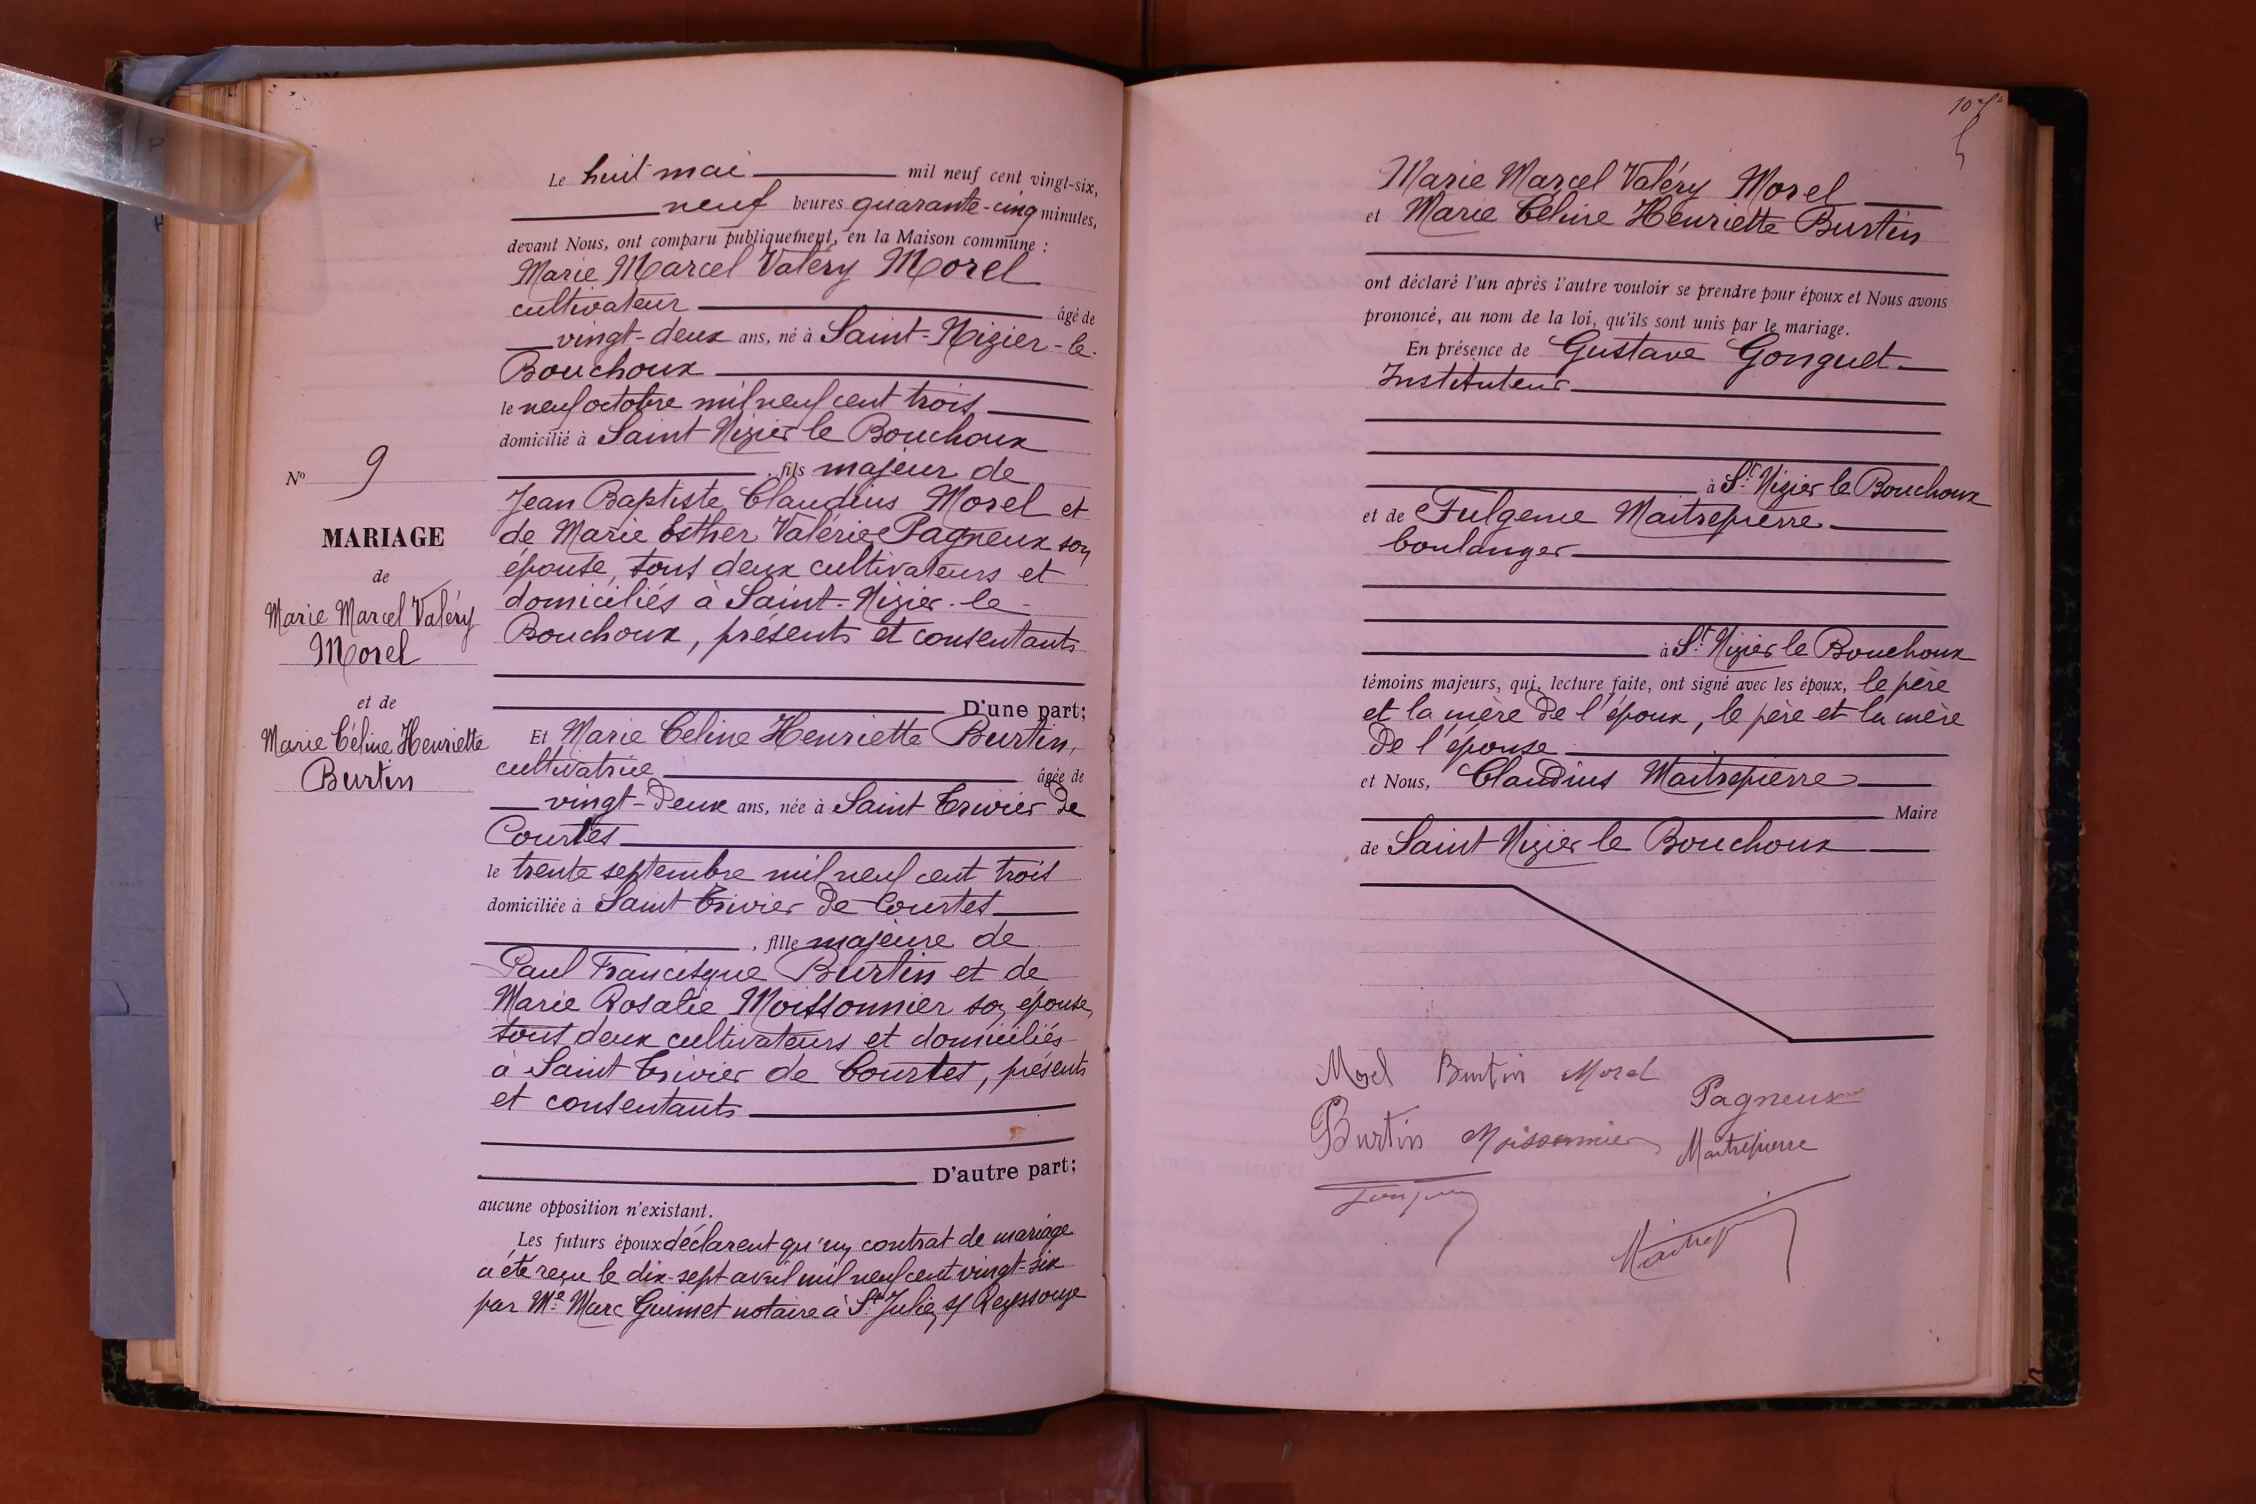 Nº 9
MARIAGE
de
Marie Marcel Valéry
Morel
et de
Marie Céline Henriette
Burtin
Le huit mai mil neuf cent vingt-six,
neuf heures quarante-cinq minutes,
devant Nous, ont comparu publiquement, en la Maison commune :
Marie Marcel Valéry Morel
cultivateur âgé de
vingt-deux ans, né à Saint-Nizier-le-
Bouchoux
le neuf octobre mil neuf cent trois
domicilié à Saint Nizier le Bouchoux
, fils majeur de
Jean Baptiste Claudius Morel et
de Marie Esther Valérie Pagneux son
épouse, tous deux cultivateurs et
domiciliés à Saint-Nizier-le-
Bouchoux, présents et consentants
D'une part;
Et Marie Céline Henriette Burtin,
cultivatrice âgée de
vingt-deux ans, née à Saint Trivier de
Courtes
le trente septembre mil neuf cent trois
domiciliée à Saint Trivier de Courtes
, fille majeure de
Paul Francisque Burtin et de
Marie Rosalie Moissonnier son épouse,
tous deux cultivateurs et domiciliés
à Saint Trivier de Courtes, présents
et consentants
D'autre part;
aucune opposition n'existant.
Les futurs époux déclarent qu'un contrat de mariage
a été reçu le dix-sept avril mil neuf cent vingt-six
par Me Marc Guimet notaire à St Julien s/ Reyssouze
Marie Marcel Valéry Morel
et Marie Céline Henriette Burtin
ont déclaré l'un après l'autre vouloir se prendre pour époux et Nous avons
prononcé, au nom de la loi, qu'ils sont unis par le mariage.
En présence de Gustave Gonguet
Instituteur
à St Nizier le Bouchoux
et de Fulgence Maitrepierre
boulanger
à St Nizier le Bouchoux
témoins majeurs, qui, lecture faite, ont signé avec les époux, le père
et la mère de l'époux, le père et la mère
de l'épouse
et Nous, Claudius Maitrepierre
Maire
de Saint Nizier le Bouchoux
Morel Burtin Morel
Pagneux
Burtin Moissonnier
Maitrepierre